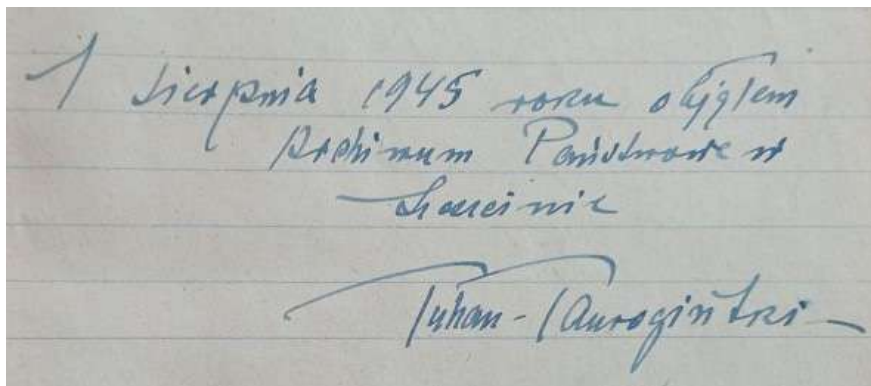 1 sierpnia 1945 roku objąłem
Archiwum Państwowe w
Szczecinie
Tuhan-Taurogiński